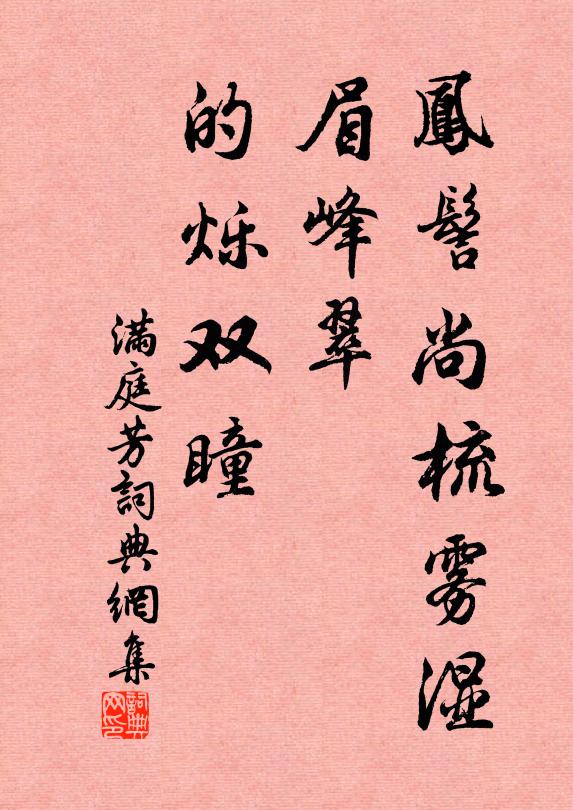 鳳髻尚梳雾湿
眉峰翠
的烁双瞳
满庭芳詞典網集
詞典网印